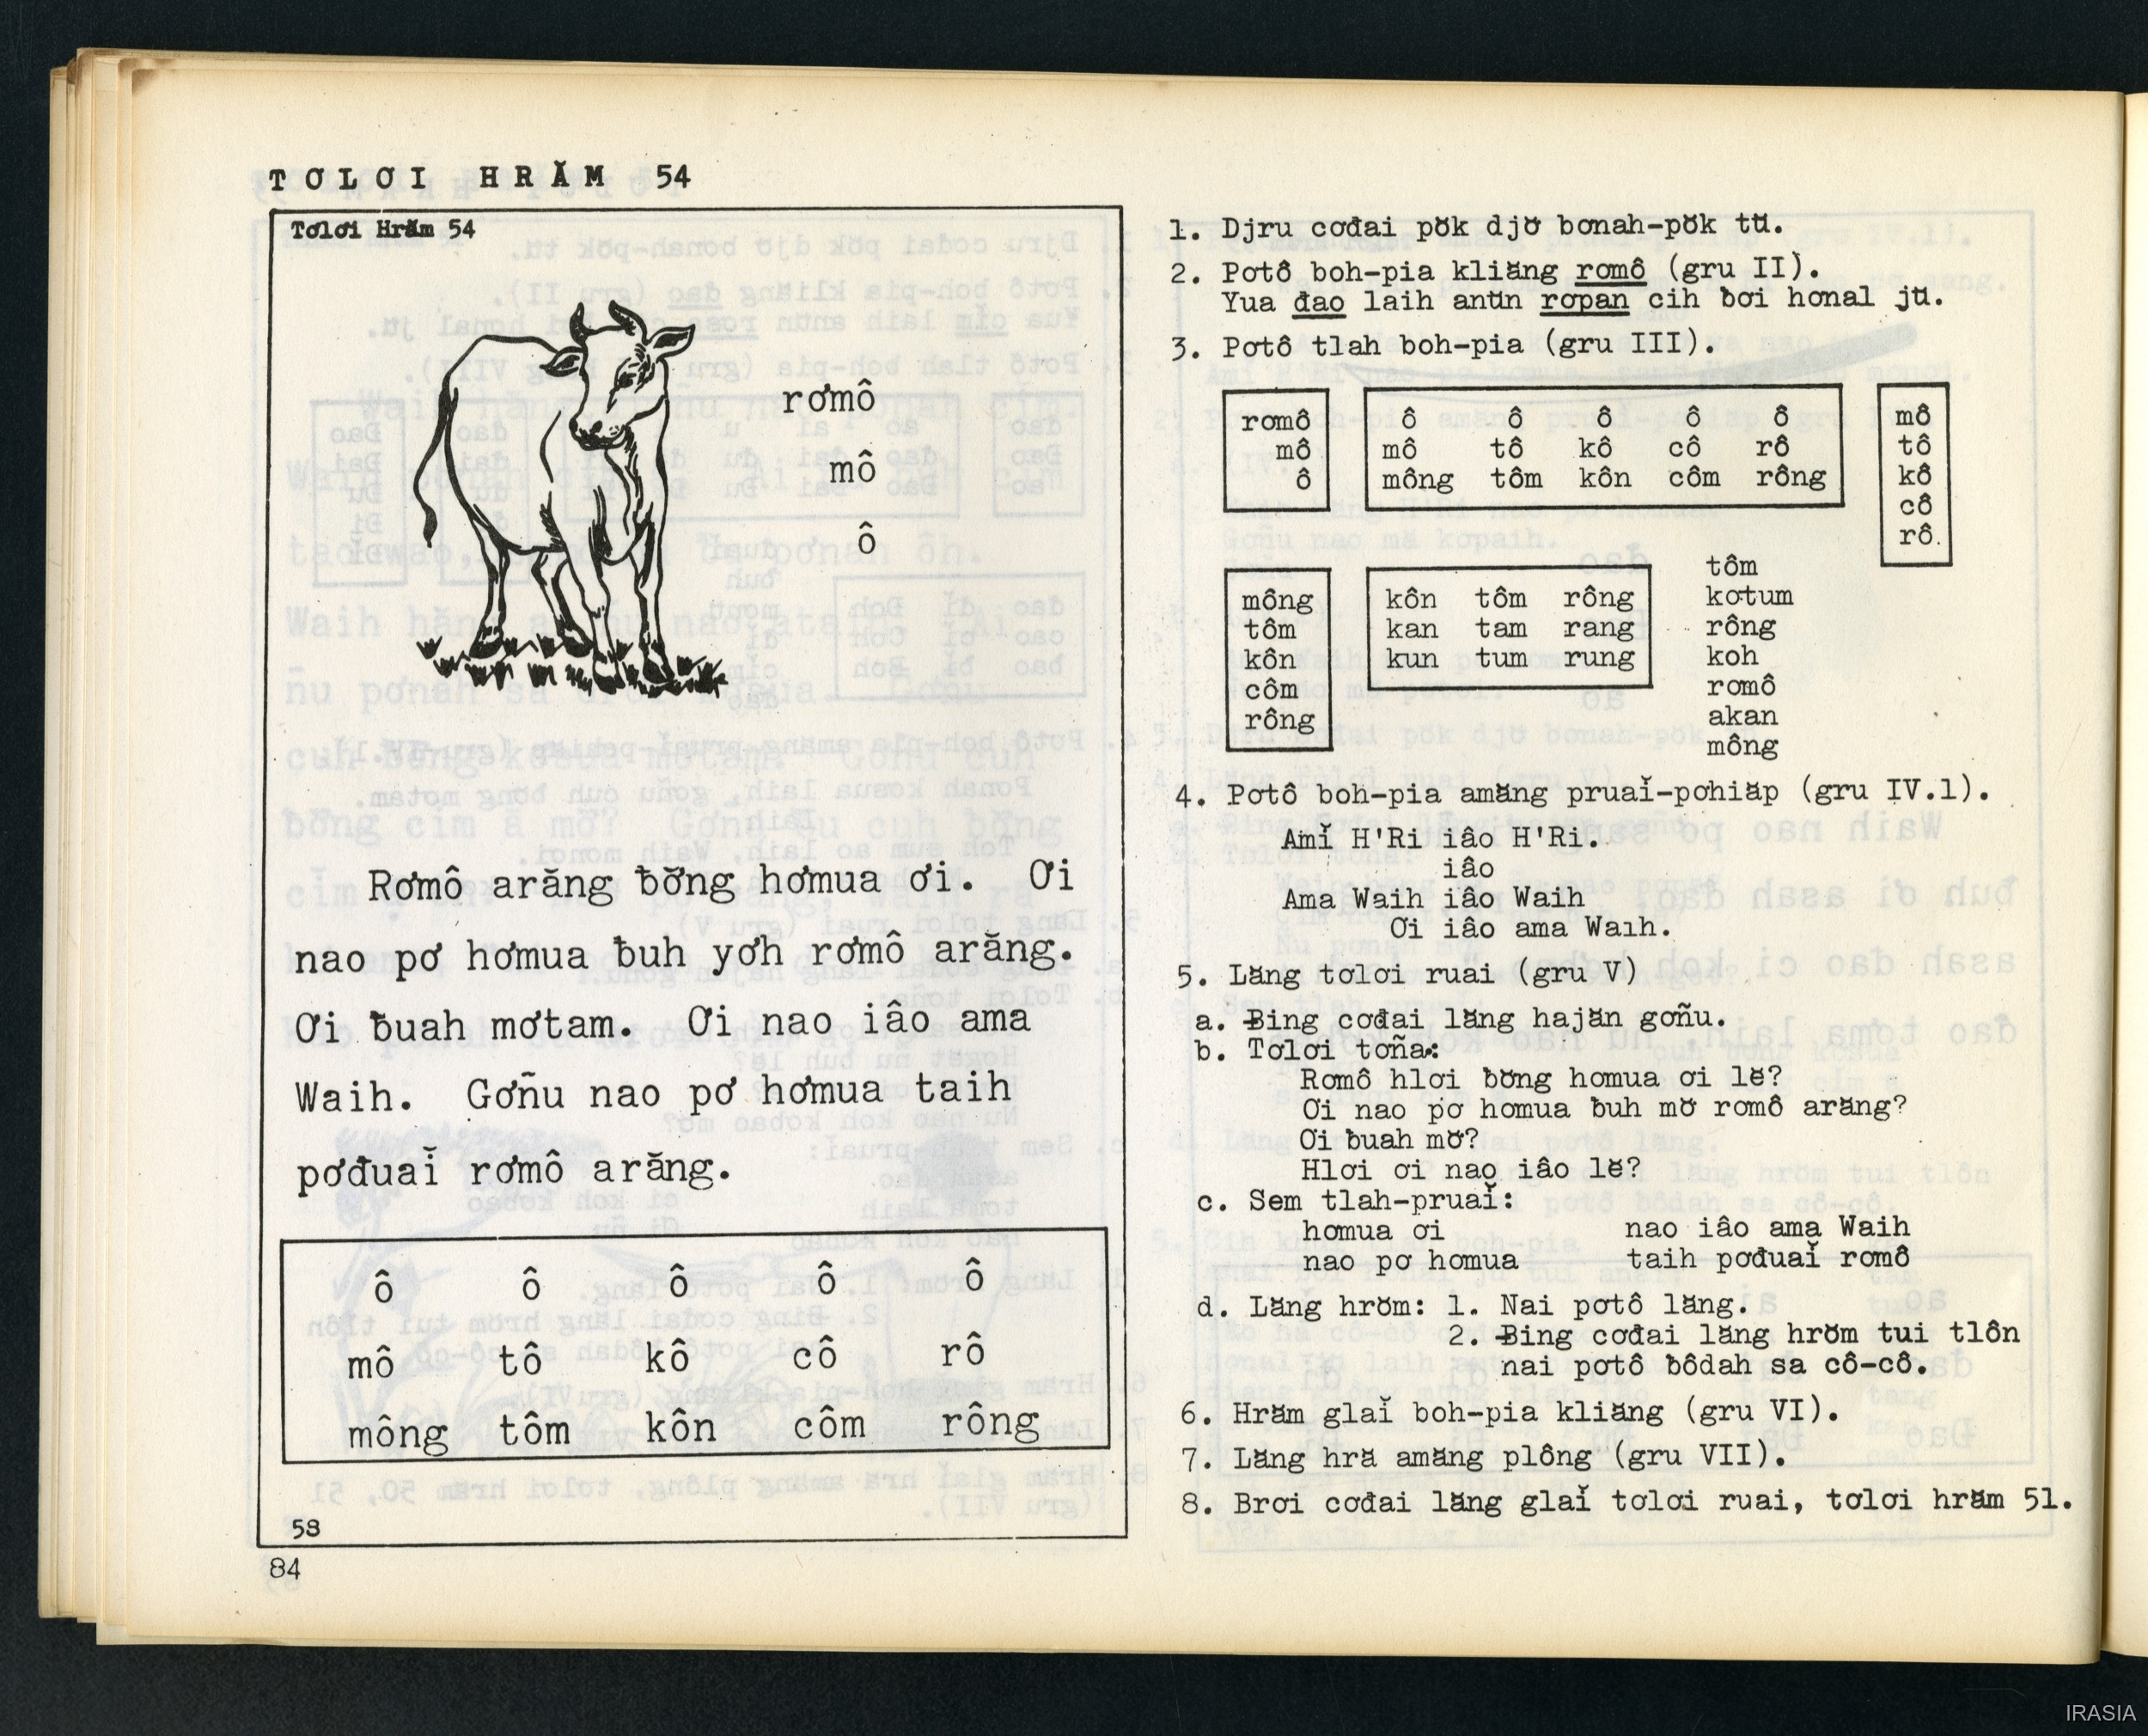 TƠLƠI HRĂM 54
Tơlơi Hrăm 54
rơmô
mô
ô
Rơmô arăng ƀơ̆ng hơmua ơi. Ơi
nao pơ hơmua ƀuh yơh rơmô arăng.
Ơi ƀuah mơtam. Ơi nao iâo ama
Waih. Gơñu nao pơ hơmua taih
pơđuaĭ rơmô arăng.
ô ô ô ô ô
mô tô kô cô rô
mông tôm kôn côm rông
58
84
1. Djru cơđai pŏk djơ̆ bơnah-pŏk tŭ.
2. Pơtô boh-pia kliăng rơmô (gru II).
Yua đao laih anŭn rơpan cih ƀơi hơnal jŭ.
3. Pơtô tlah boh-pia (gru III).
rơmô
mô
ô
ô ô ô ô ô
mô tô kô cô rô
mông tôm kôn côm rông
mô
tô
kô
cô
rô
mông
tôm
kôn
côm
rông
kôn tôm rông
kan tam rang
kun tum rung
tôm
kơtum
rông
koh
rơmô
akan
mông
4. Pơtô boh-pia amăng pruaĭ-pơhiăp (gru IV.1).
Amĭ H'Ri iâo H'Ri.
iâo
Ama Waih iâo Waih
Ơi iâo ama Waih.
5. Lăng tơlơi ruai (gru V)
a. Ƀing cơđai lăng hajăn gơñu.
b. Tơlơi tơña:
Rơmô hlơi ƀơ̆ng hơmua ơi lĕ?
Ơi nao pơ hơmua ƀuh mơ̆ rơmô arăng?
Ơi ƀuah mơ̆?
Hlơi ơi nao iâo lĕ?
c. Sem tlah-pruaĭ:
hơmua ơi nao iâo ama Waih
nao pơ hơmua taih pơđuaĭ rơmô
d. Lăng hrŏm: 1. Nai pơtô lăng.
2. Ƀing cơđai lăng hrŏm tui tlôn
nai pơtô ƀôdah sa cô-cô.
6. Hrăm glaĭ boh-pia kliăng (gru VI).
7. Lăng hră amăng plông (gru VII).
8. Brơi cơđai lăng glaĭ tơlơi ruai, tơlơi hrăm 51.
IRASIA